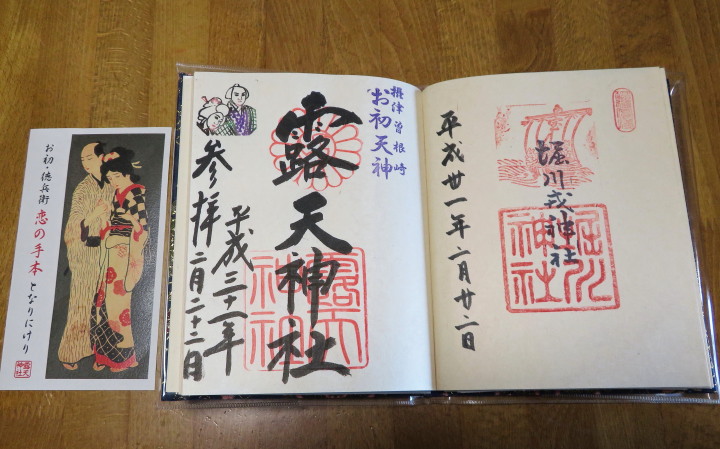 お初・徳兵衛
恋の手本となりにけり
露天神社
摂津 曽根崎
お初天神
露天神社
露天神社
平成三十一年
参拝二月二十二日
堀川戎神社
堀川神社
平成卅一年二月廿二日